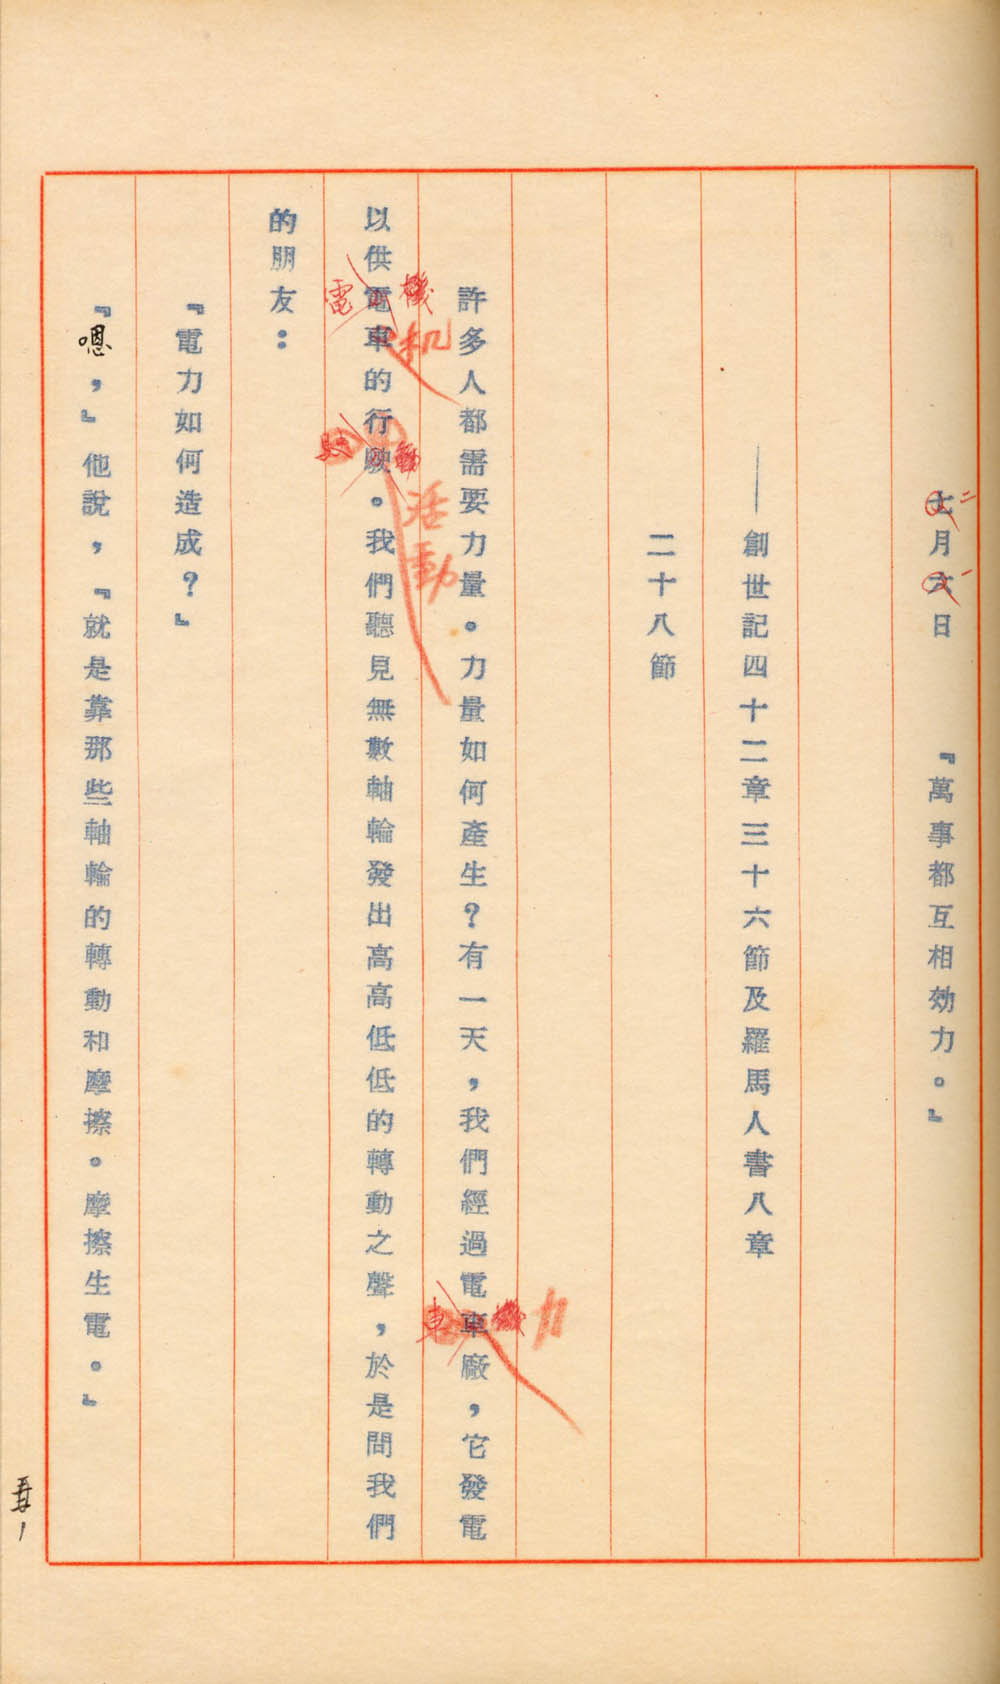 七二月六一日　『萬事都互相効力。』
——創世記四十二章三十六節及羅馬人書八章
二十八節
許多人都需要力量。力量如何產生？有一天，我們經過電車廠，它發電
機力
車
以供電車的行駛。我們聽見無數軸輪發出高高低低的轉動之聲，於是問我們
機机
電
活動
動
的朋友：
『電力如何造成？』
『嗯，』他說，『就是靠那些軸輪的轉動和摩擦。摩擦生電。』